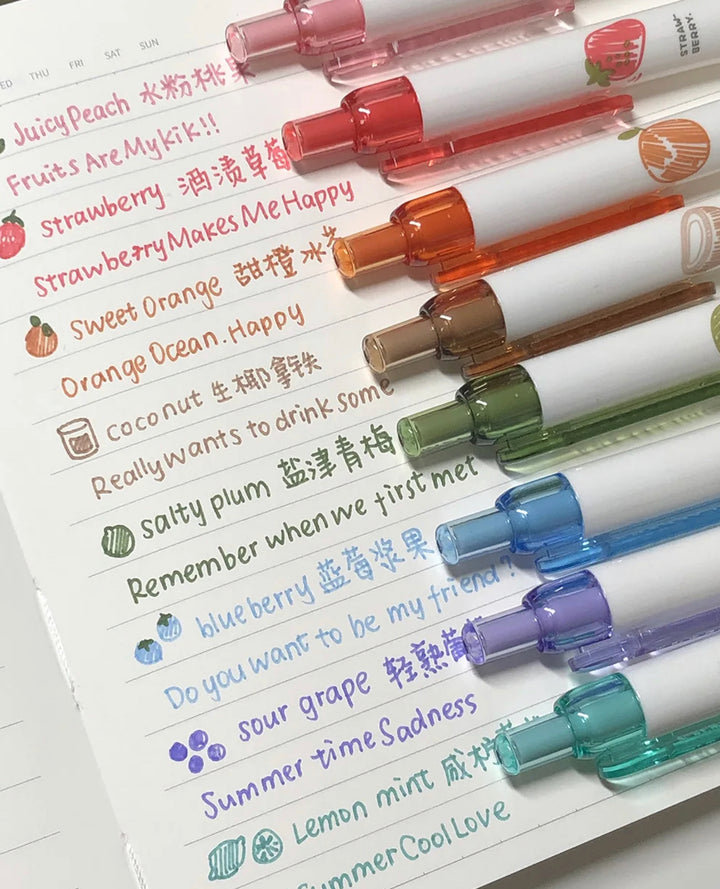 THU FRI SAT SUN
Juicy Peach 水粉桃
Fruits Are My kik!!
strawberry 酒渍草莓
Strawberry Makes Me Happy
sweet Orange 甜橙冰
Orange Ocean. Happy
coconut 生椰拿铁
Really wants to drink some
salty plum 盐津青梅
Remember when we first met
blueberry 蓝莓浆果
Do you want to be my friend?
sour grape 轻熟
Summer time Sadness
Lemon mint 咸柠
Summer Cool Love
STRAW-
BERRY.